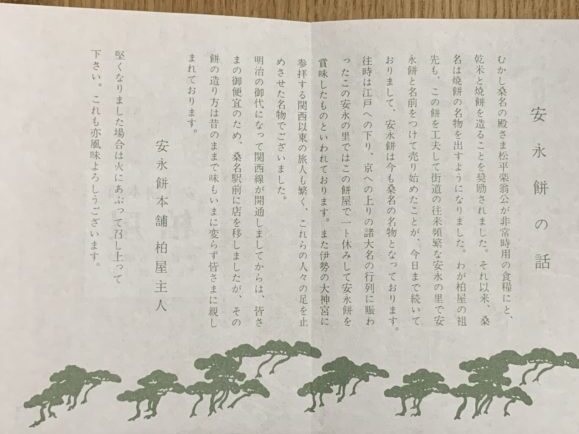 安永餅の話
むかし桑名の殿さま松平楽翁公が非常時用の食糧にと、
乾米と焼餅を造ることを奨励されました。それ以来、桑
名は焼餅の名物を出すようになりました。わが柏屋の祖
先も、この餅を工夫して街道の往来頻繁な安永の里で安
永餅と名前をつけて売り始めたことが、今日まで続いて
おりまして、安永餅は今も桑名の名物となっております。
往時は江戸への下り、京への上りの諸大名の行列に賑わ
ったこの安永の里ではこの餅屋で一ト休みして安永餅を
賞味したものといわれております。また伊勢の大神宮に
参拝する関西以東の旅人も繁く、これらの人々の足を止
めさせた名物でございました。
明治の御代になって関西線が開通しましてからは、皆さ
まの御便宜のため、桑名駅前に店を移しましたが、その
餅の造り方は昔のままで味もいまに変らず皆さまに親し
まれております。
安永餅本舗 柏屋主人
堅くなりました場合は火にあぶつて召し上って
下さい。これも亦風味よろしうございます。